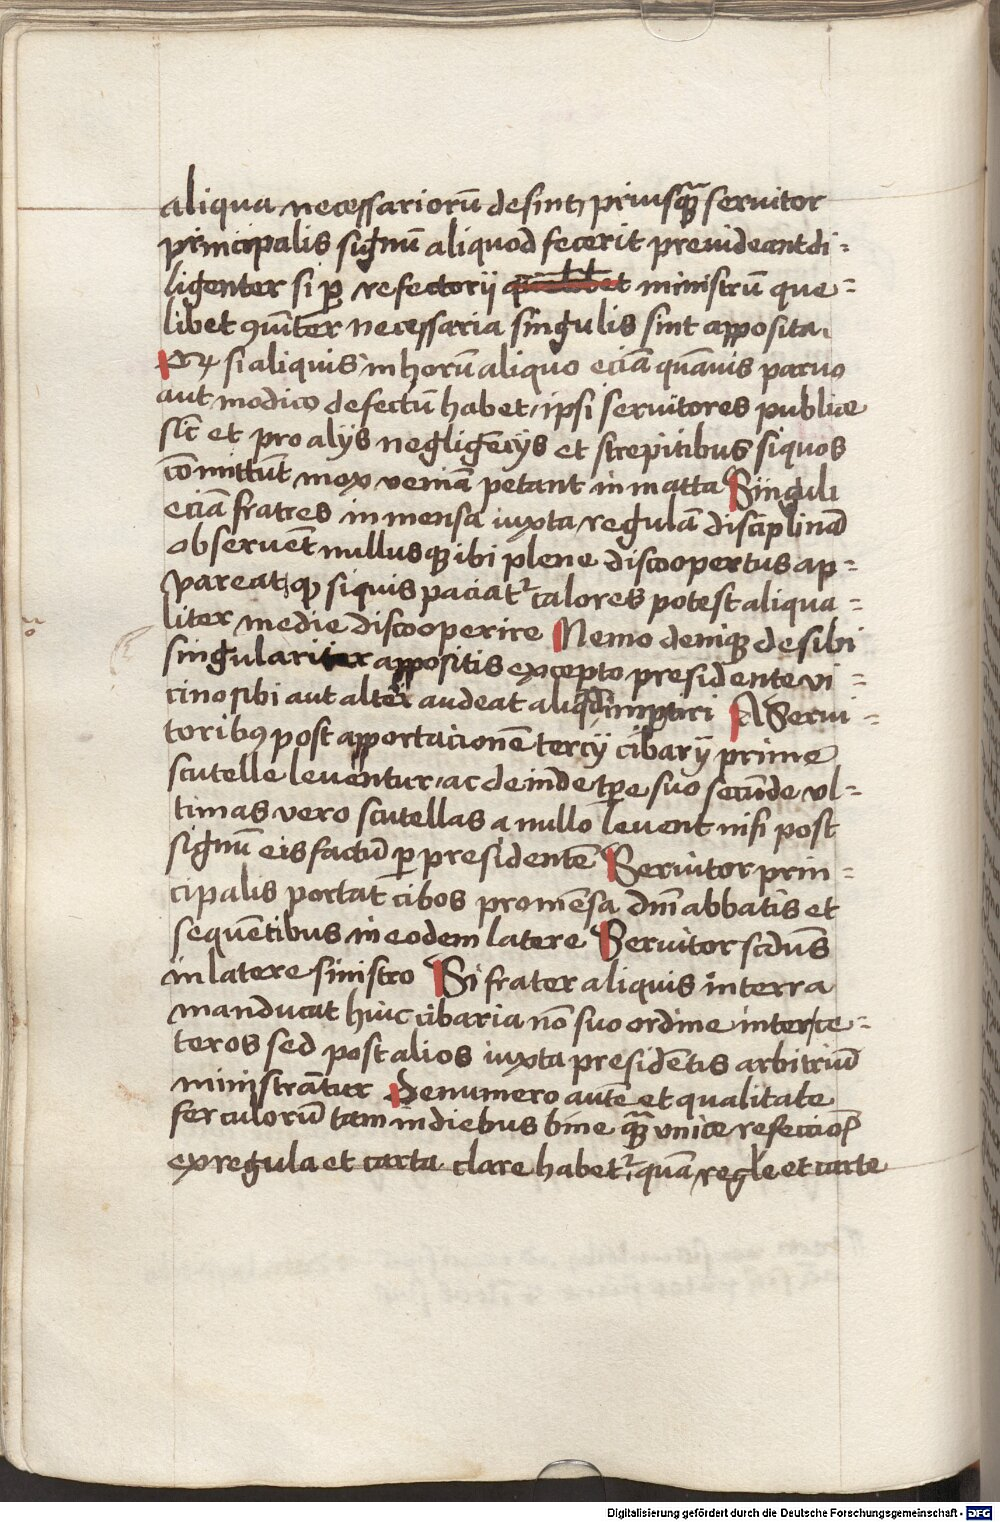 aliqua necessariorū desint, priusꝙ̃ seruitor
principalis signū aliquod fecerit preuideant di-
ligenter si ꝑ refectorij ministrū que-
libet 9uīter necessaria singulis sint apposita.
si aliquis in horū aliquo eciā quāuis paruo
aut modico defectū habet, ipsi seruitores publice
sīt et pro alijs negligēcijs et strepitibus siquos
cōmittūt mox veniā petant in matta Singuli
eciā fratres in mensa iuxta regulā disciplinā
obseruēt nullusqꝫ ibi plene discoopertus ap-
pareat, ꝙ siquis paciat᷑ calores potest aliqua-
liter medie discooperire Nemo deniqꝫ de sibi
singulariter appositis excepto presidente vi-
cino sibi aut alteri audeat aliqd impartiri A Serui-
torib9 post apportacionē tercij cibarij prime
scutelle leuentur, ac deinde tꝑe suo secūde vl-
timas vero scutellas a nullo leuent nisi post
signū eis factū ꝑ presidentē Seruitor prin-
cipalis portat cibos pro mēsa dm̄ abbatis et
sequētibus in eodem latere Seruitor scdūs
in latere sinistro Si frater aliquis in terra
manducat huic cibaria nō suo ordine inter ce-
teros sed post alios iuxta presidētis arbitriū
ministrātur De numero autē et qualitate
ferculorū tam in diebus bine ꝙ̃ vnice refeccioꝭ
ex regula et carta clare habet᷑, quā regl̄e et carte